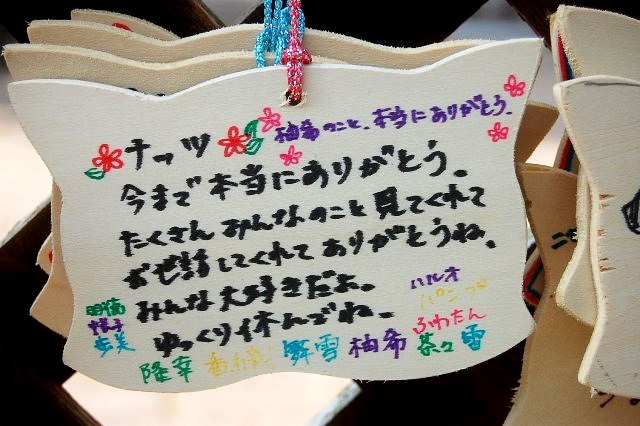 柚希のこと、本当にありがとう。
ナッツ
今まで本当にありがとう。
たくさんみんなのこと見てくれて
お世話してくれてありがとうね。
みんな大好きだよ。
ゆっくり休んでね。
ハルオ
ふわたん
歩美
隆幸
舞雪 柚希 茶々 雪